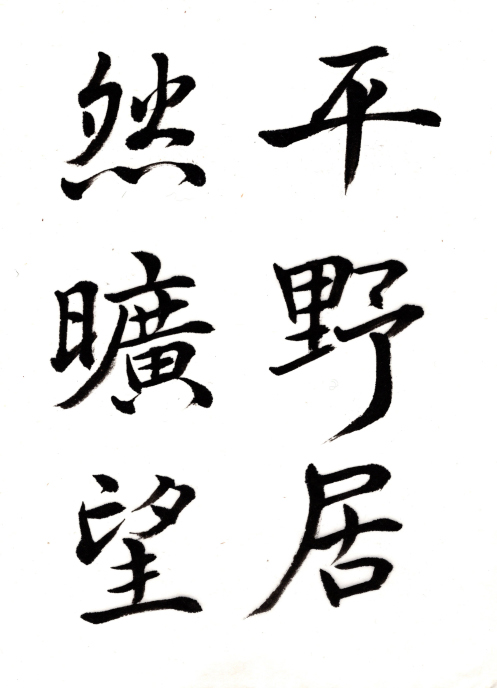 平野居
然曠望